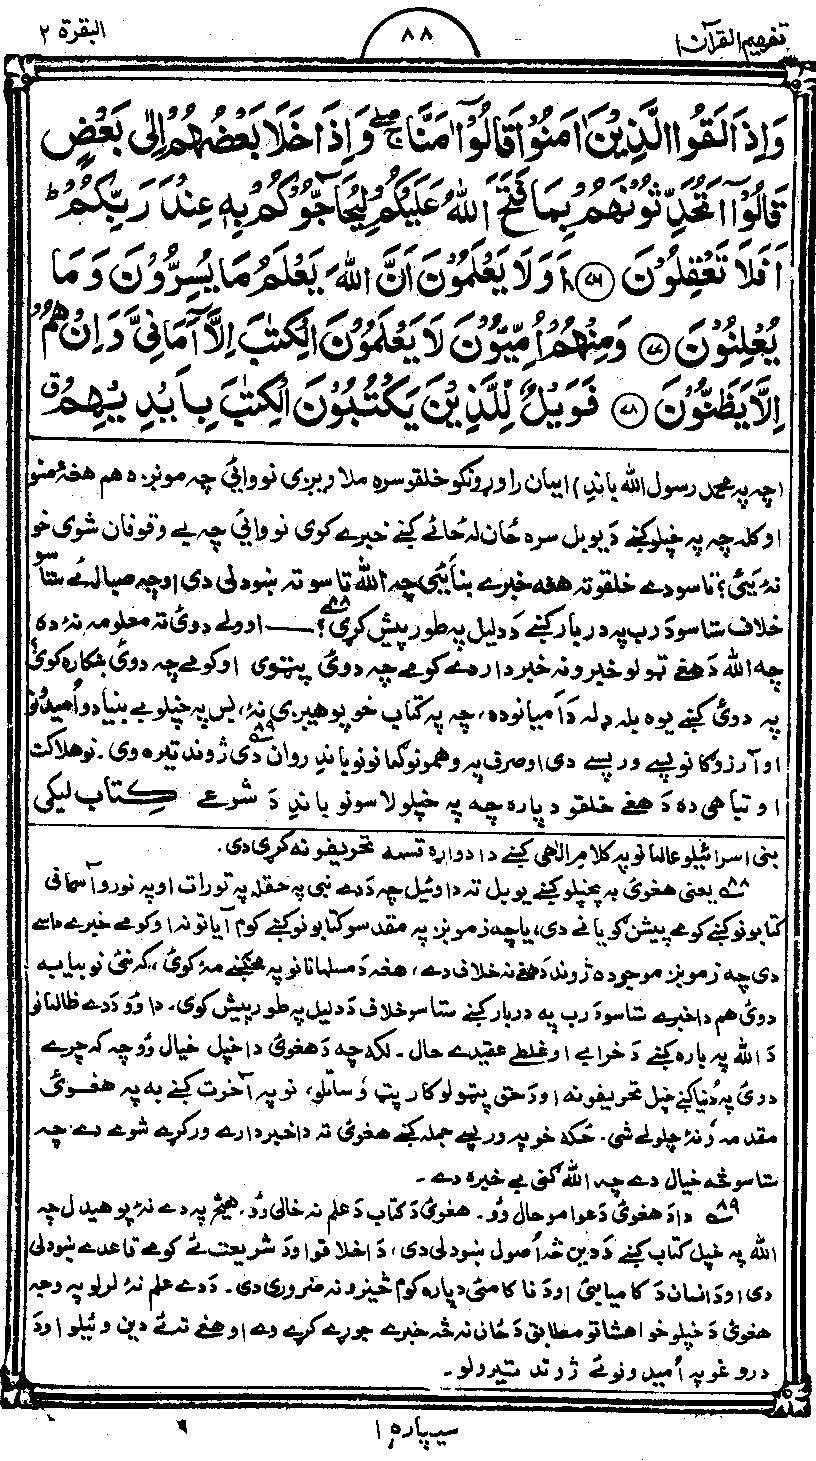 تفهیم القرآن ۱
۸۸
البقرة ۲
وَاِذَا لَقُوا الَّذِيْنَ اٰمَنُوْا قَالُوْٓا اٰمَنَّا ۚۖ وَاِذَا خَلَا بَعْضُهُمْ اِلٰى بَعْضٍ
قَالُوْٓا اَتُحَدِّثُوْنَهُمْ بِمَا فَتَحَ اللهُ عَلَيْكُمْ لِيُحَآجُّوْكُمْ بِهٖ عِنْدَ رَبِّكُمْ ؕ
اَفَلَا تَعْقِلُوْنَ ﴿۷۶﴾ اَوَلَا يَعْلَمُوْنَ اَنَّ اللهَ يَعْلَمُ مَا يُسِرُّوْنَ وَمَا
يُعْلِنُوْنَ ﴿۷۷﴾ وَمِنْهُمْ اُمِّيُّوْنَ لَا يَعْلَمُوْنَ الْكِتٰبَ اِلَّآ اَمَانِيَّ وَاِنْ هُمْ
اِلَّا يَظُنُّوْنَ ﴿۷۸﴾ فَوَيْلٌ لِّلَّذِيْنَ يَكْتُبُوْنَ الْكِتٰبَ بِاَيْدِيْهِمْ ۗ
(چه په محمد رسول الله باندِ) ایمان راوړونکو خلقو سره ملاویږی نو وائی چه مونږه هم هغه منو
او کله چه په خپلو کښے دَ یو بل سره ځان له ځائے کښے خبرے کوی نو وائی چه بے وقوفان شوی خو
نه یئ؟ تاسو دے خلقو ته هغه خبرے بنایئ چه الله تاسو ته ښودلی دی اوچه صبا لہ ئے ستاسو
خلاف ستاسو دَ رب په دربار کښے دَ دلیل په طور پیش کړی؟ ۸۸ — او ولے دوئ ته معلومه نه ده
چه الله دَ هغے ټولو خبرو نه خبردار دے کومے چه دوئ پټوی او کومے چه دوئ ښکاره کوی
په دوئ کښے یوه بله ډله دَ اُمیانو ده، چه په کتاب خو پوهیږی نه، بس په خپلو بے بنیاده اُمیدونو
او آرزوګانو پسے ورپسے دی او صرف په وهمونو ګمانونو باندِ روان دی ۸۹ ژوند تیره وی. نو هلاکت
او تباهی ده دَ هغے خلقو دپاره چه په خپلو لاسونو باندِ دَ شرعے کتاب لیکی
بنی اسرائیلو عالمانو په کلام الٰهی کښے دا دواړه قسمه تحریفونه کړی دی.
۸۸ یعنی هغوئ به پخپلو کښے یو بل ته دا وئیل چه دَ دے نبی په حقله په تورات او په نورو آسمانی
کتابونو کښے کومے پیشن ګویانے دی، یا چه زمونږ په مقدسو کتابونو کښے کوم آیاتونه او کومے خبرے داسے
دی چه زمونږ موجوده ژوند دَ هغے نه خلاف دے، هغه دَ مسلمانانو په مخکښے مه کوئ، که نئ نو بیا به
دوئ هم دا خبرے ستاسو دَ رب په دربار کښے ستاسو خلاف دَ دلیل په طور پیش کوی. دا وُو دَ دے ظالمانو
دَ الله په باره کښے دَ خرابے او غلطے عقیدے حال. لکه چه دَ هغوئ دا خپل خیال وُو چه که چرے
دوئ په دُنیا کښے خپل تحریفونه او دَ حق پټولو کار پټ وُساتلو، نو په آخرت کښے به په هغوئ
مقدمه وُنه چلولے شی. ځکه خو په ورپسے جمله کښے هغوئ ته دا خبردارے ورکړے شوے دے چه
ستاسو څه خیال دے چه الله ګنی بے خبره دے.
۸۹ دا دَ هغوئ دَ عوامو حال وُو. هغوئ دَ کتاب دَ علم نه خالی وُو. هیڅ په دے نه پوهیدل چه
الله په خپل کتاب کښے دَ دین څه اُصول ښودلی دی، دَ اخلاقو او دَ شریعت ئے کومے قاعدے ښودلی
دی او دَ انسان دَ کامیابئ او دَ ناکامئ دپاره کوم څیزونه ضروری دی. دَ دے علم نه لرلو په وجه
هغوئ دَ خپلو خواهشاتو مطابق دَ ځان نه څه خبرے جوړے کړے وے او هغے ته ئے دین وئیلو او دَ
دروغو په اُمیدونو ئے ژوند تیرولو.
سیپاره ۱